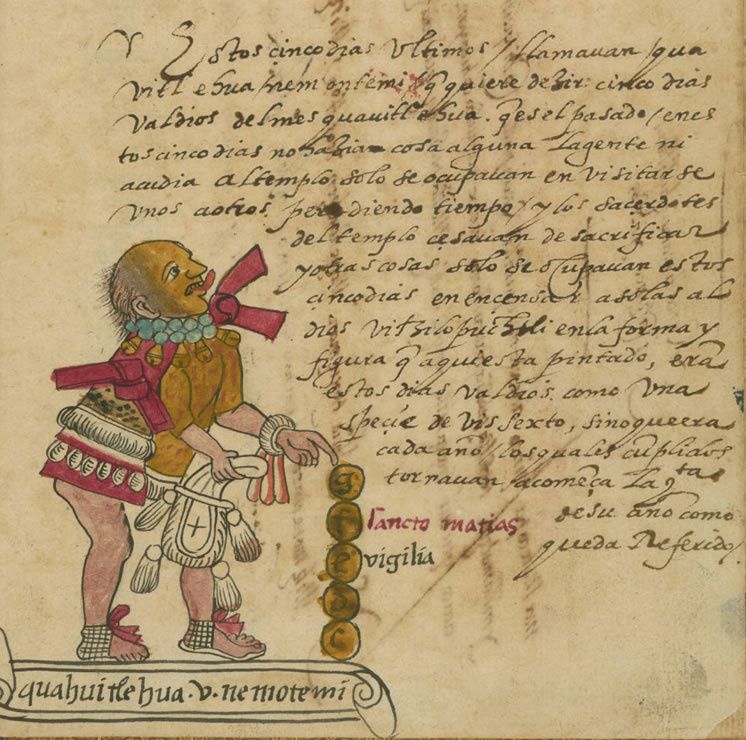 Y Estos cinco dias Vltimos / llamavan / qua
vitl e hua / nem ontemi q̃ quiere dezir cinco dias
Valdios del mes quavitlehua. q̃ es el pasado / en es
tos cinco dias no habia cosa alguna la gente ni
acudia al templo solo se ocupavan en visitarse
vnos aotros perdiendo tiempo / y los sacerdotes
del templo cesavan de sacrificar
yotras cosas solo se ocupavan estos
cinco dias en encensar a solas al
dios vitzilopuchtli en la forma y
figura q̃ aqui esta pintado, erã
estos dias valdios como vna
speçie de vissexto, sino que era
cada año los quales cũplidos
tornavan acomẽça la qta
de su año como
queda Referido /
g
f
e
D
c
sancto matias
vigilia
quahuitlehua · v · nemotemi